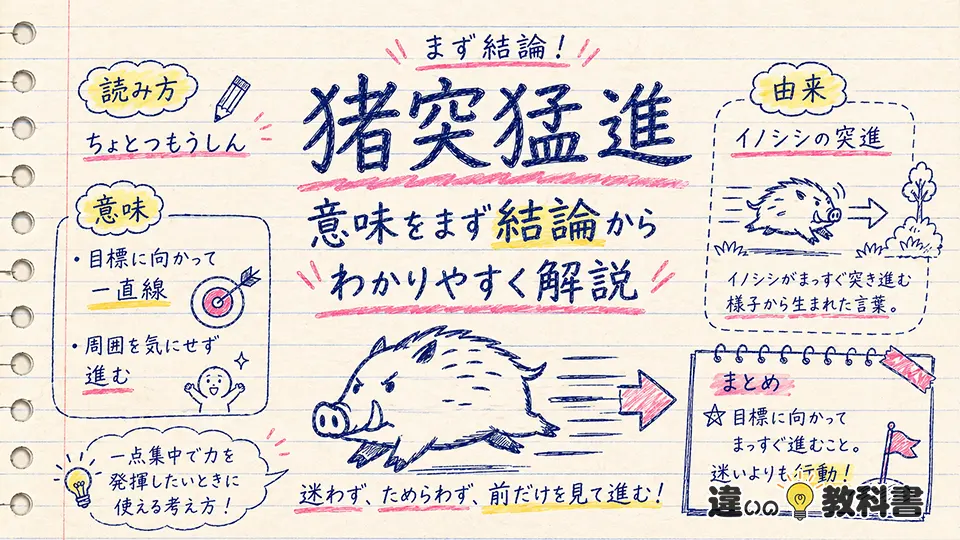 まず結論！
猪突猛進
意味をまず結論から
わかりやすく解説
読み方
ちょとつもうしん
意味
・目標に向かって
一直線
・周囲を気にせず
進む
一点集中で力を
発揮したいときに
使える考え方！
迷わず、ためらわず、前だけを見て進む！
由来
イノシシの突進
イノシシがまっすぐ突き進む
様子から生まれた言葉。
まとめ
☆目標に向かって
まっすぐ進むこと。
迷いよりも行動！
違いの教科書